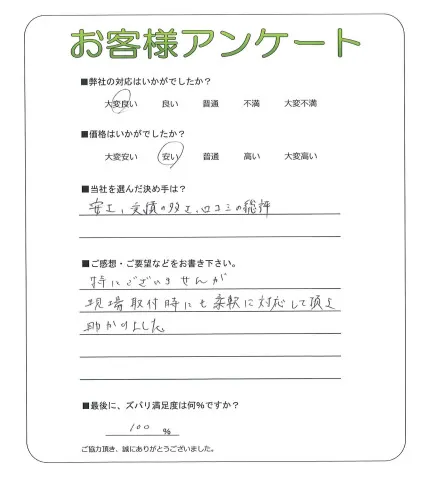 お客様アンケート
■弊社の対応はいかがでしたか?
大変良い 良い 普通 不満 大変不満
■価格はいかがでしたか?
大変安い 安い 普通 高い 大変高い
■当社を選んだ決め手は?
安さ、実績の多さ、口コミの総評
■ご感想・ご要望などをお書き下さい。
特にございませんが
現場取付時にも柔軟に対応して頂き
助かりました
■最後に、ズバリ満足度は何%ですか?
100 %
ご協力頂き、誠にありがとうございました。